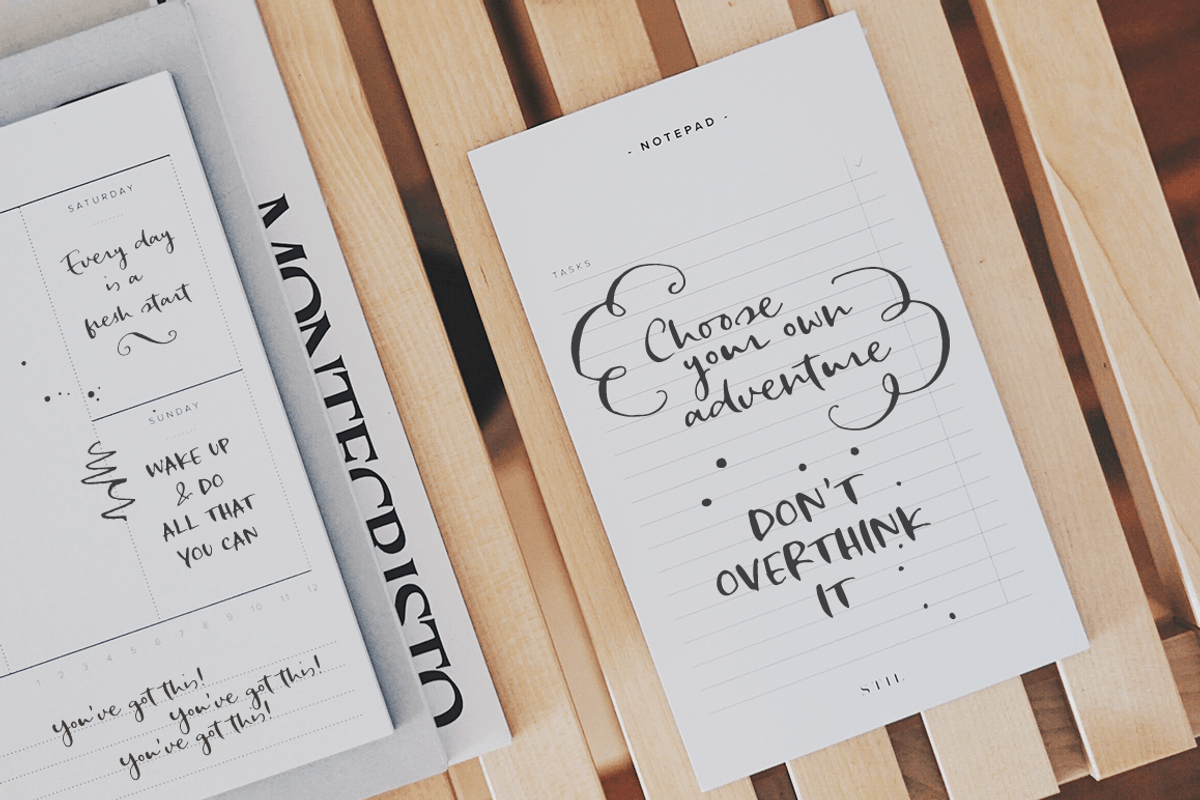 SATURDAY
Every day
is a
fresh start
SUNDAY
WAKE UP
& DO
ALL THAT
YOU CAN
1 2 3 4 5 6 7 8 9 10 11 12
you've got this!
you've got this!
you've got this!
MONTECRISTO
- NOTEPAD -
TASKS
Choose
your own
adventure
DON'T
OVERTHINK
IT